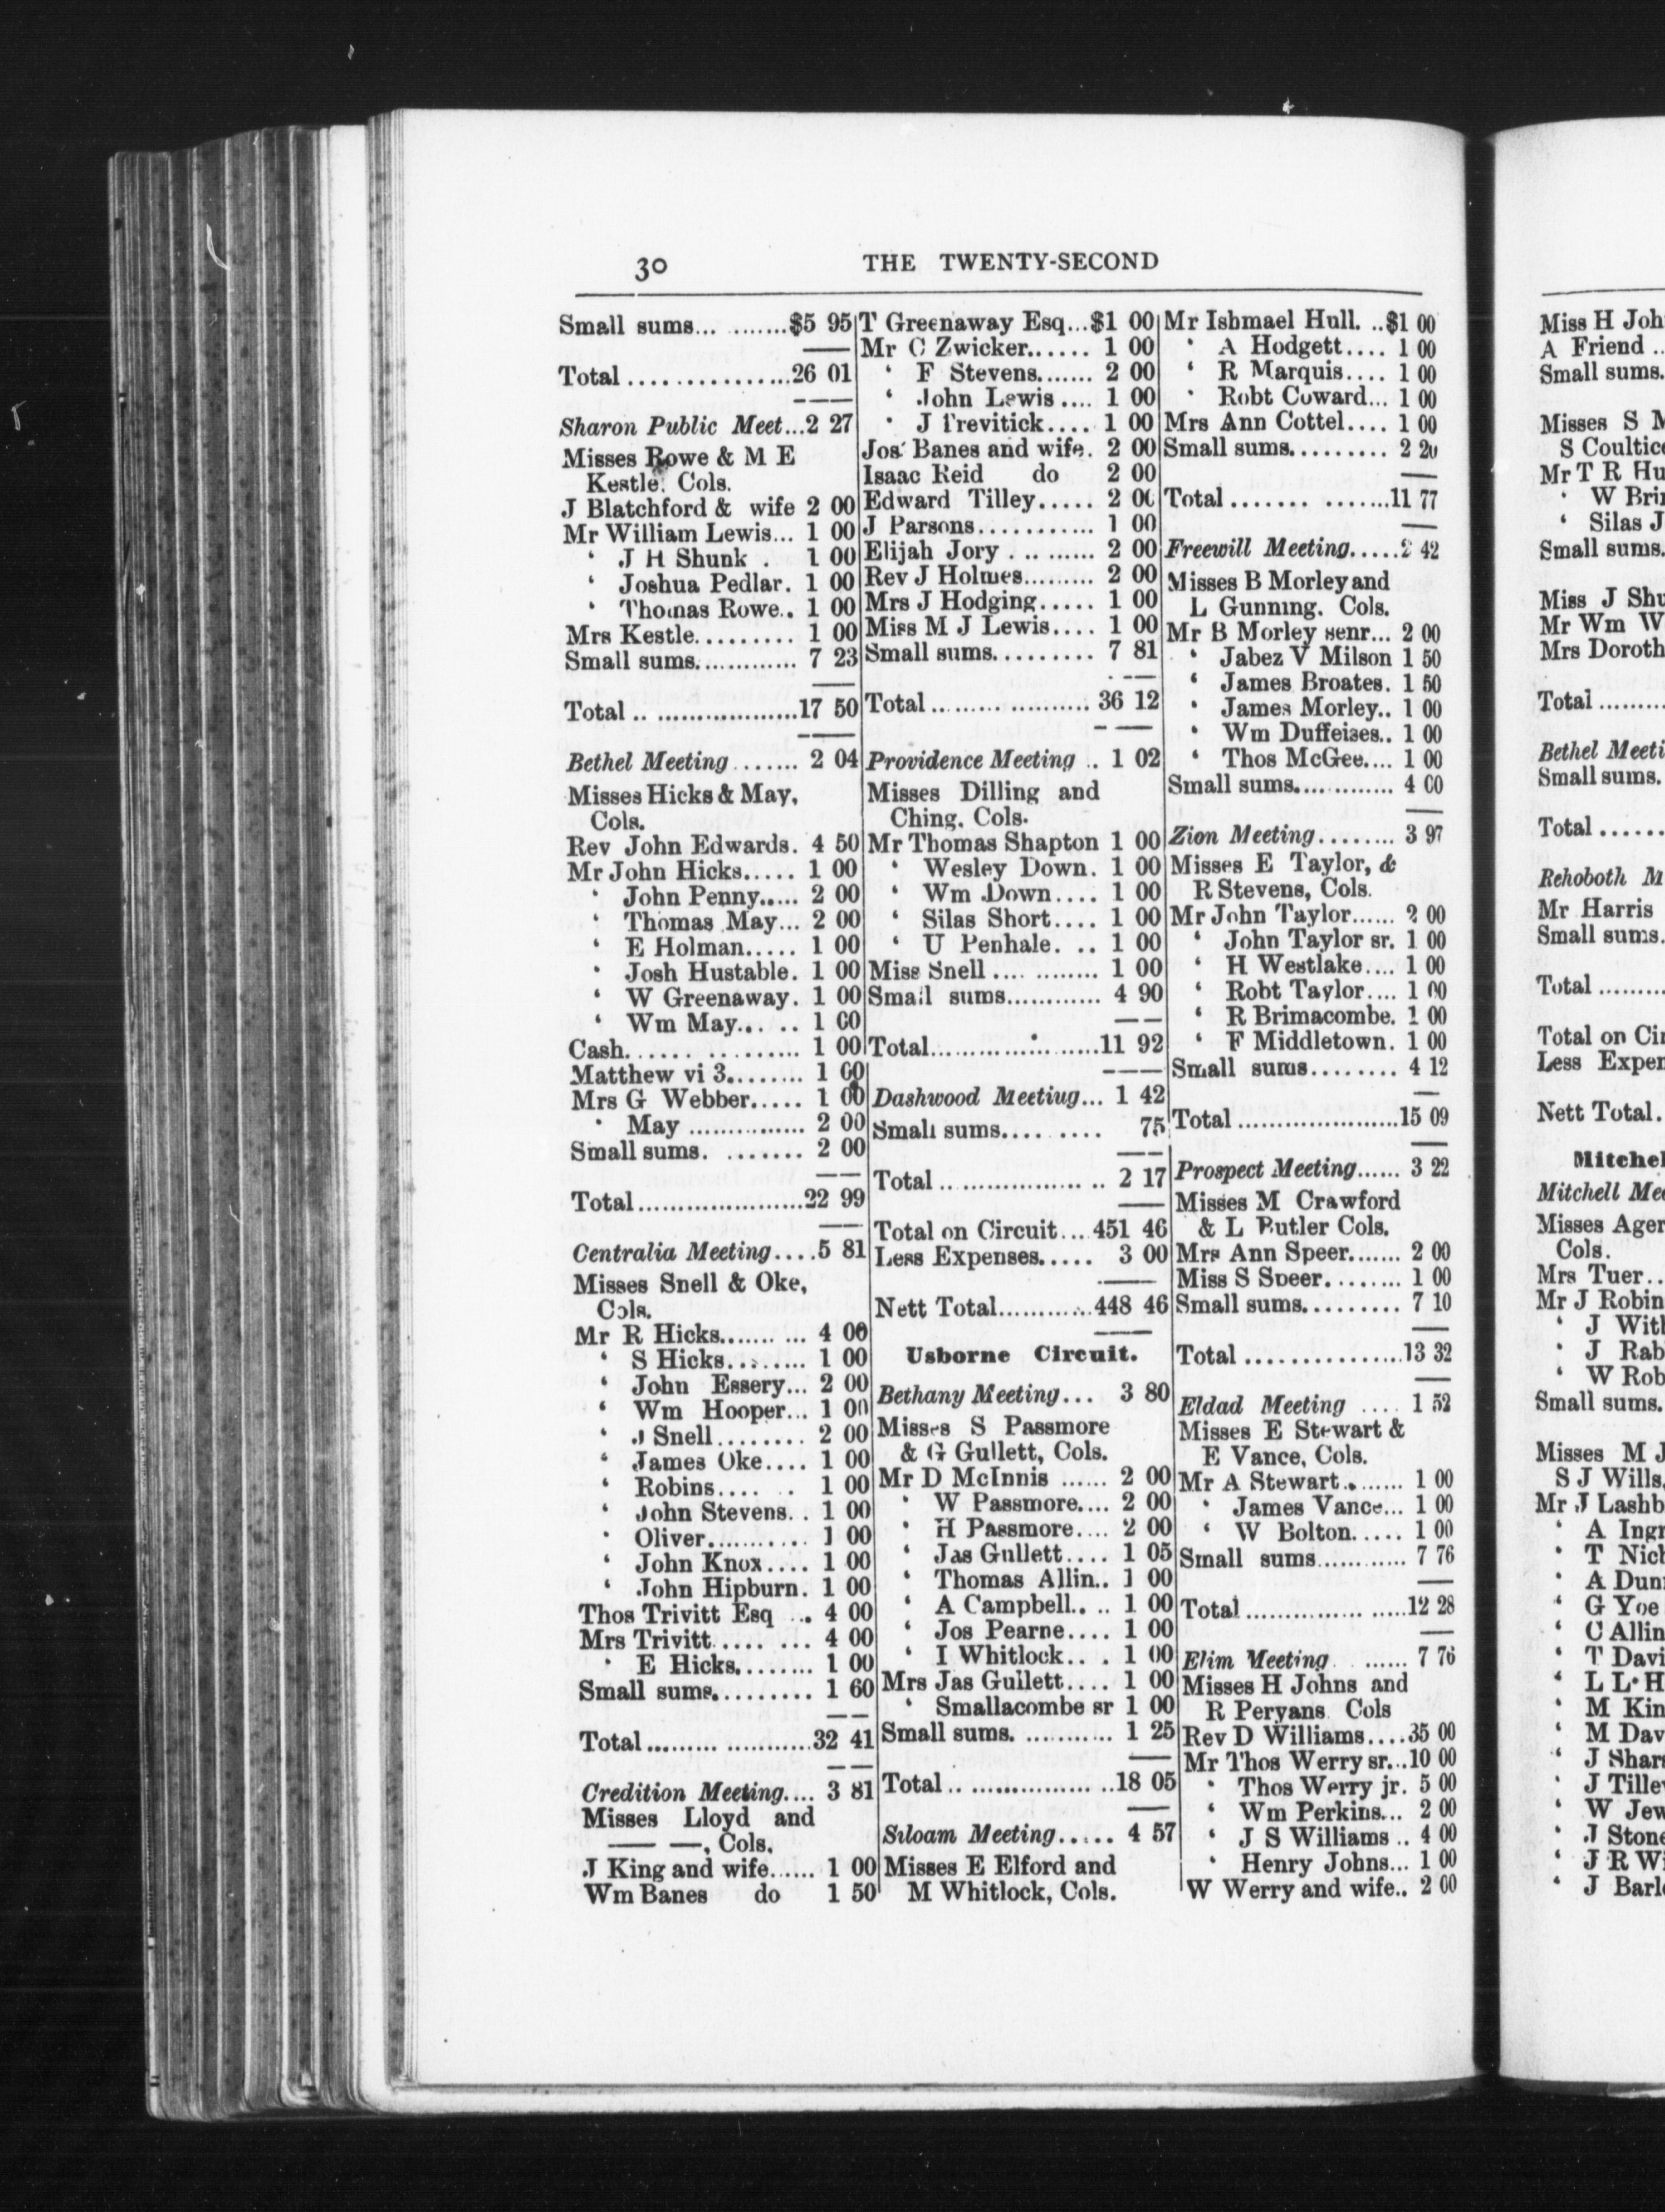 30 THE TWENTY-SECOND
Small sums... ........$5 95
Total ................26 01
Sharon Public Meet...2 27
Misses Rowe & M E
Kestle. Cols.
J Blatchford & wife 2 00
Mr William Lewis... 1 00
‘ J H Shunk . 1 00
‘ Joshua Pedlar. 1 00
‘ Thomas Rowe.. 1 00
Mrs Kestle.......... 1 00
Small sums............. 7 23
Total .. ...................17 50
Bethel Meeting ....... 2 04
Misses Hicks & May,
Cols.
Rev John Edwards. 4 50
Mr John Hicks..... 1 00
‘ John Penny..... 2 00
‘ Thomas May... 2 00
‘ E Holman..... 1 00
‘ Josh Hustable. 1 00
‘ W Greenaway. 1 00
‘ Wm May... .. 1 00
Cash....... .......... 1 00
Matthew vi 3......... 1 00
Mrs G Webber..... 1 00
‘ May ............... 2 00
Small sums. ........ 2 00
Total......................22 99
Centralia Meeting....5 81
Misses Snell & Oke,
Cols.
Mr R Hicks....... ... 4 00
‘ S Hicks......... 1 00
‘ John Essery... 2 00
‘ Wm Hooper... 1 00
‘ J Snell......... 2 00
‘ James Oke.... 1 00
‘ Robins.... . 1 00
‘ John Stevens. . 1 00
‘ Oliver........... 1 00
‘ John Knox.... 1 00
‘ John Hipburn. 1 00
Thos Trivitt Esq ... 4 00
Mrs Trivitt..... ... 4 00
‘ E Hicks......... 1 00
Small sums.......... 1 60
Total.......... ............32 41
Credition Meeting.... 3 81
Misses Lloyd and
—— —, Cols.
J King and wife...... 1 00
Wm Banes do 1 50
T Greenaway Esq...$1 00
Mr C Zwicker...... 1 00
‘ F Stevens....... 2 00
‘ John Lewis .... 1 00
‘ J Trevitick.... 1 00
Jos Banes and wife. 2 00
Isaac Reid do 2 00
Edward Tilley..... 2 00
J Parsons............ 1 00
Elijah Jory . ......... 2 00
Rev J Holmes......... 2 00
Mrs J Hodging..... 1 00
Miss M J Lewis.... 1 00
Small sums.......... 7 81
Total .................. 36 12
Providence Meeting .. 1 02
Misses Dilling and
Ching. Cols.
Mr Thomas Shapton 1 00
‘ Wesley Down. 1 00
‘ Wm Down.... 1 00
‘ Silas Short.... 1 00
‘ U Penhale. .. 1 00
Miss Snell .... ......... 1 00
Small sums............ 4 90
Total......................11 92
Dashwood Meeting... 1 42
Small sums.... .... 75
Total .. .................. .. 2 17
Total on Circuit... 451 46
Less Expenses..... 3 00
Nett Total............448 46
Usborne Circuit.
Bethany Meeting... 3 80
Misses S Passmore
& G Gullett, Cols.
Mr D McInnis ...... 2 00
‘ W Passmore.... 2 00
‘ H Passmore.... 2 00
‘ Jas Gullett.... 1 05
‘ Thomas Allin.. 1 00
‘ A Campbell.. .. 1 00
‘ Jos Pearne.... 1 00
‘ I Whitlock.. . 1 00
Mrs Jas Gullett.... 1 00
‘ Smallacombe sr 1 00
Small sums. ........... 1 25
Total .. ................ ..18 05
Siloam Meeting..... 4 57
Misses E Elford and
M Whitlock, Cols.
Mr Ishmael Hull. ..$1 00
‘ A Hodgett.... 1 00
‘ R Marquis.... 1 00
‘ Robt Coward... 1 00
Mrs Ann Cottel.... 1 00
Small sums......... 2 20
Total ........ ........11 77
Freewill Meeting.....2 42
Misses B Morley and
L Gunning. Cols.
Mr B Morley senr... 2 00
‘ Jabez V Milson 1 50
‘ James Broates. 1 50
‘ James Morley.. 1 00
‘ Wm Duffeises.. 1 00
‘ Thos McGee.... 1 00
Small sums............. 4 00
Zion Meeting........ 3 97
Misses E Taylor, &
R Stevens, Cols.
Mr John Taylor...... 2 00
‘ John Taylor sr. 1 00
‘ H Westlake.... 1 00
‘ Robt Taylor.... 1 00
‘ R Brimacombe. 1 00
‘ F Middletown. 1 00
Small sums........ 4 12
Total ......................15 09
Prospect Meeting...... 3 22
Misses M Crawford
& L Butler Cols.
Mrs Ann Speer....... 2 00
Miss S Speer......... 1 00
Small sums.......... 7 10
Total ................13 32
Eldad Meeting .... 1 52
Misses E Stewart &
E Vance, Cols.
Mr A Stewart........ 1 00
‘ James Vance... 1 00
‘ W Bolton..... 1 00
Small sums............ 7 76
Total ................ .....12 28
Elim Meeting. ...... 7 76
Misses H Johns and
R Peryans Cols
Rev D Williams....35 00
Mr Thos Werry sr...10 00
‘ Thos Werry jr. 5 00
‘ Wm Perkins... 2 00
‘ J S Williams .. 4 00
‘ Henry Johns... 1 00
W Werry and wife.. 2 00
Miss H Joh
A Friend ..
Small sums.
Misses S M
S Coultic
Mr T R Hu
‘ W Bri
‘ Silas J
Small sums.
Miss J Shu
Mr Wm W
Mrs Doroth
Total .........
Bethel Meeti
Small sums.
Total ......
Rehoboth M
Mr Harris
Small sums.
Total .........
Total on Cir
Less Expen
Nett Total.
Mitchel
Mitchell Mee
Misses Ager
Cols.
Mrs Tuer..
Mr J Robin
‘ J With
‘ J Rab
‘ W Rob
Small sums.
Misses M J
S J Wills,
Mr J Lashb
‘ A Ingr
‘ T Nich
‘ A Dun
‘ G Yoe
‘ C Allin
‘ T Davi
‘ L L H
‘ M Kin
‘ M Dav
‘ J Shar
‘ J Tille
‘ W Jew
‘ J Stone
‘ J R Wi
‘ J Barl